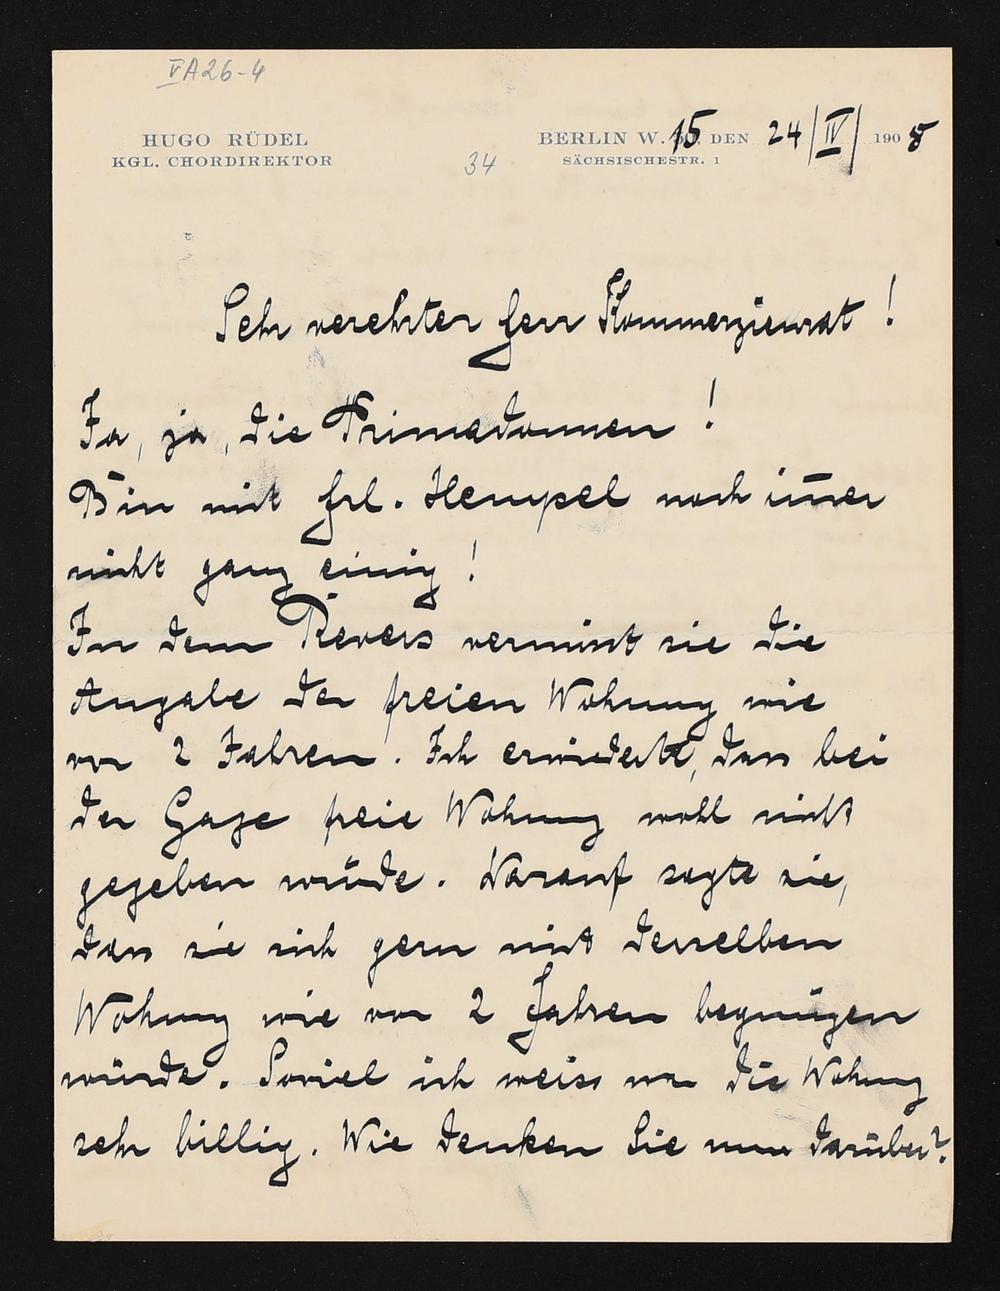 VA26-4
HUGO RÜDEL
KGL. CHORDIREKTOR
34
BERLIN W. 15 DEN 24/IV/ 1908
SÄCHSISCHESTR. 1
Sehr verehrter Herr Kommerzienrat!
Ja, ja, die Primadonnen!
Bin mit Frl. Hempel noch im̄er
nicht ganz einig!
In dem Revers vermisst sie die
Angabe der freien Wohnung wie
vor 2 Jahren. Ich erwiderte, dass bei
der Gage freie Wohnung wohl nicht
gegeben würde. Darauf sagte sie,
dass sie sich gern mit derselben
Wohnung wie vor 2 Jahren begnügen
würde. Soviel ich weiss war die Wohnung
sehr billig. Wie denken Sie nun darüber?